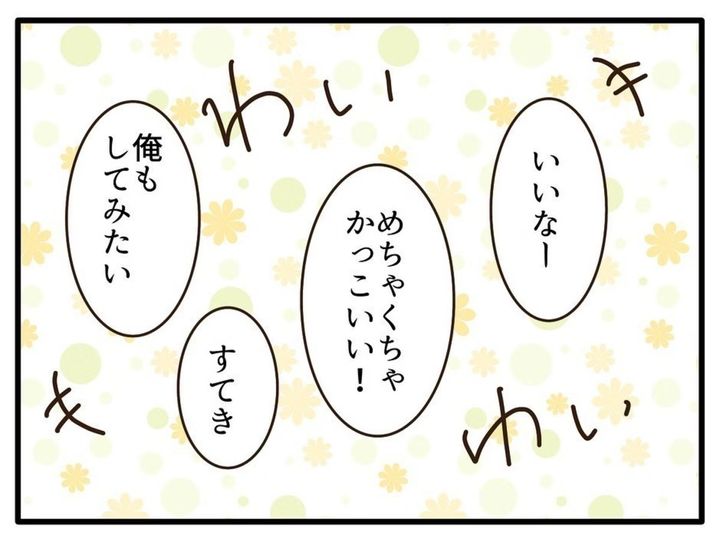 いいなー
めちゃくちゃ
かっこいい！
俺も
してみたい
すてき
わい
わい